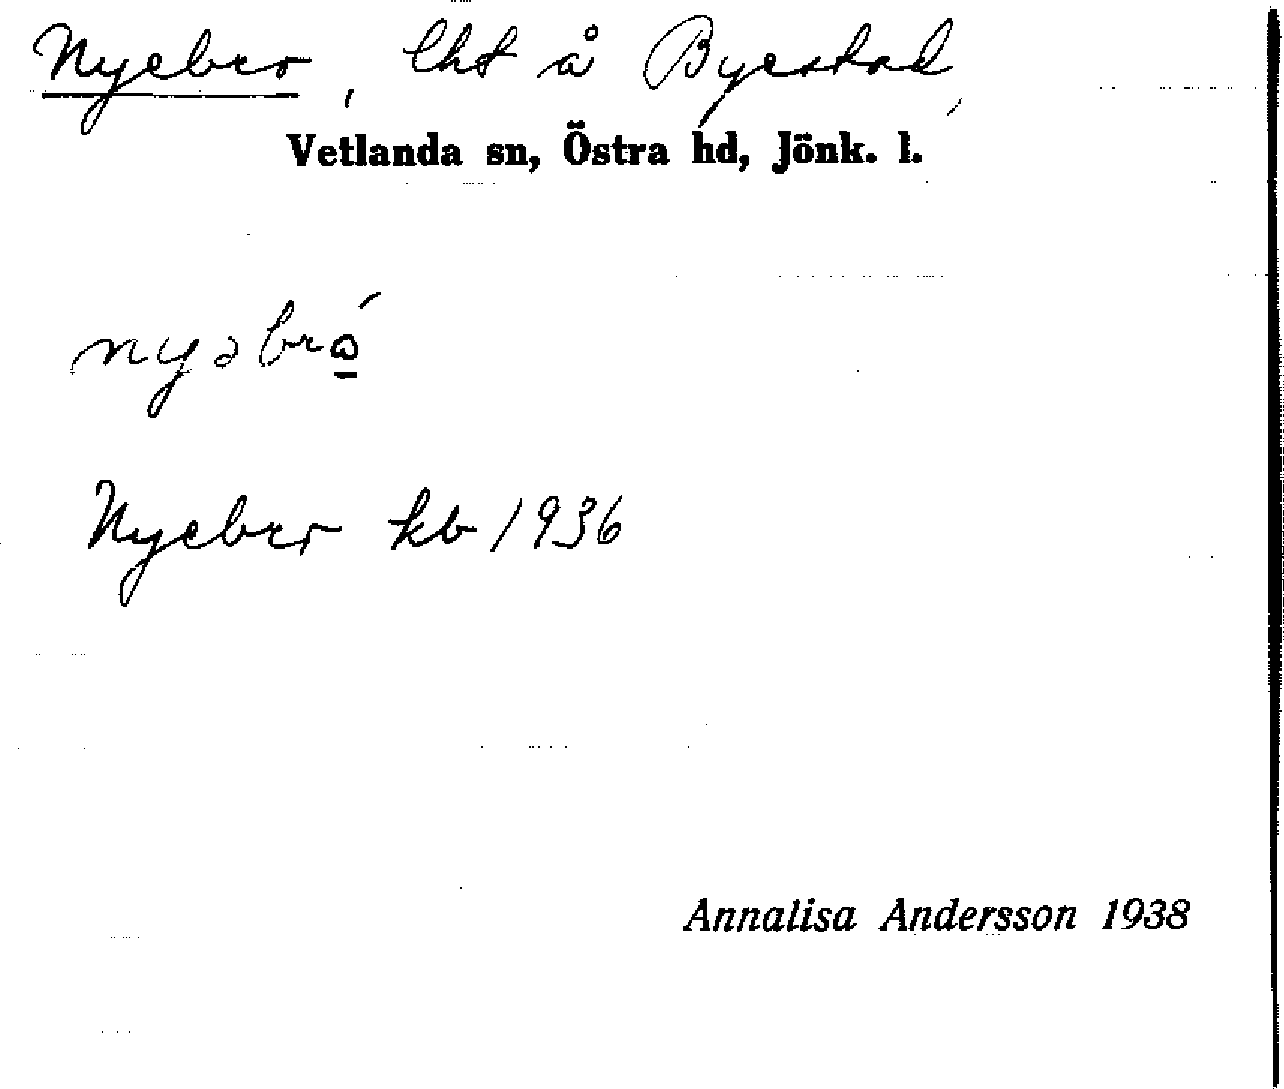 Nyebro, lht å Byestad,
Vetlanda sn, Östra hd, Jönk. l.
nyəbró
Nyebro kb 1936
Annalisa Andersson 1938